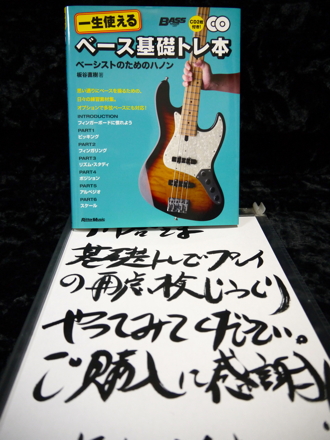 一生使える
BASS
CD2枚付き!
CD
ベース基礎トレ本
ベーシストのためのハノン
板谷直樹 著
日々の練習里対策。
オクターヴ奏法ベースにも対応!
INTRODUCTION
フィンガーボードに慣れよう
PART1
ピッキング
PART2
フィンガリング
PART3
リズム・スタディ
PART4
ポジション
PART5
アルペジオ
PART6
スケール
RittorMusic
基礎トレでプレイ
の再点検じっくり
やってみて下さい。
ご購入に感謝!